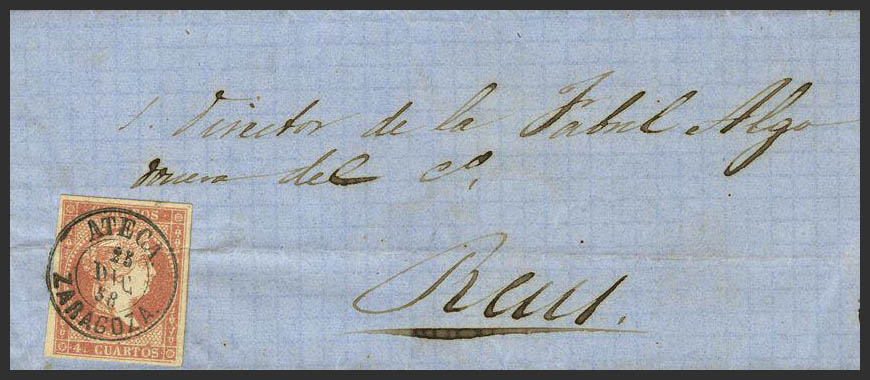 S. Director de la Fabril Algo
donera del Cº.
Reus.
CORREOS
ATECA
25
DIC
58
ZARAGOZA.
4. CUARTOS